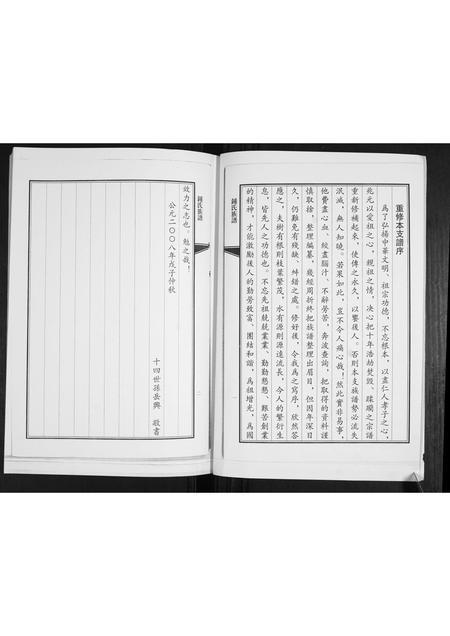 重修本支譜序
為了弘揚中華文明、祖宗功德，不忘根本，以盡仁人孝子之心，
兆元以愛祖之心，親祖之情，决心把十年浩劫焚毀、蹂躪之宗譜
重新修補起來，使傳之永久，以饗後人。否則本支族譜勢必流失
泯滅，無人知曉。若果如此，豈不令人痛心哉！然此實非易事，
他費盡心血、絞盡腦汁、不辭勞苦，奔波查詢，把取得的資料謹
慎取捨，整理編纂，幾經周折終把族譜整理出眉目，但因年深日
久，仍難免有殘缺、紕錯之處。修好後，令我為之寫序，欣然答
應之。夫樹有根則枝葉繁茂，水有源則源遠流長，今人的繁衍生
息，皆先人之功德也。不忘先祖兢兢業業、勤勤懇懇、艱苦創業
的精神，才能激勵後人的勤勞致富、團結和諧，為祖增光，為國
鍾氏族譜
鍾氏族譜
效力之志也。勉之哉！
公元二〇〇八年戊子仲秋
十四世孫岳興 敬書